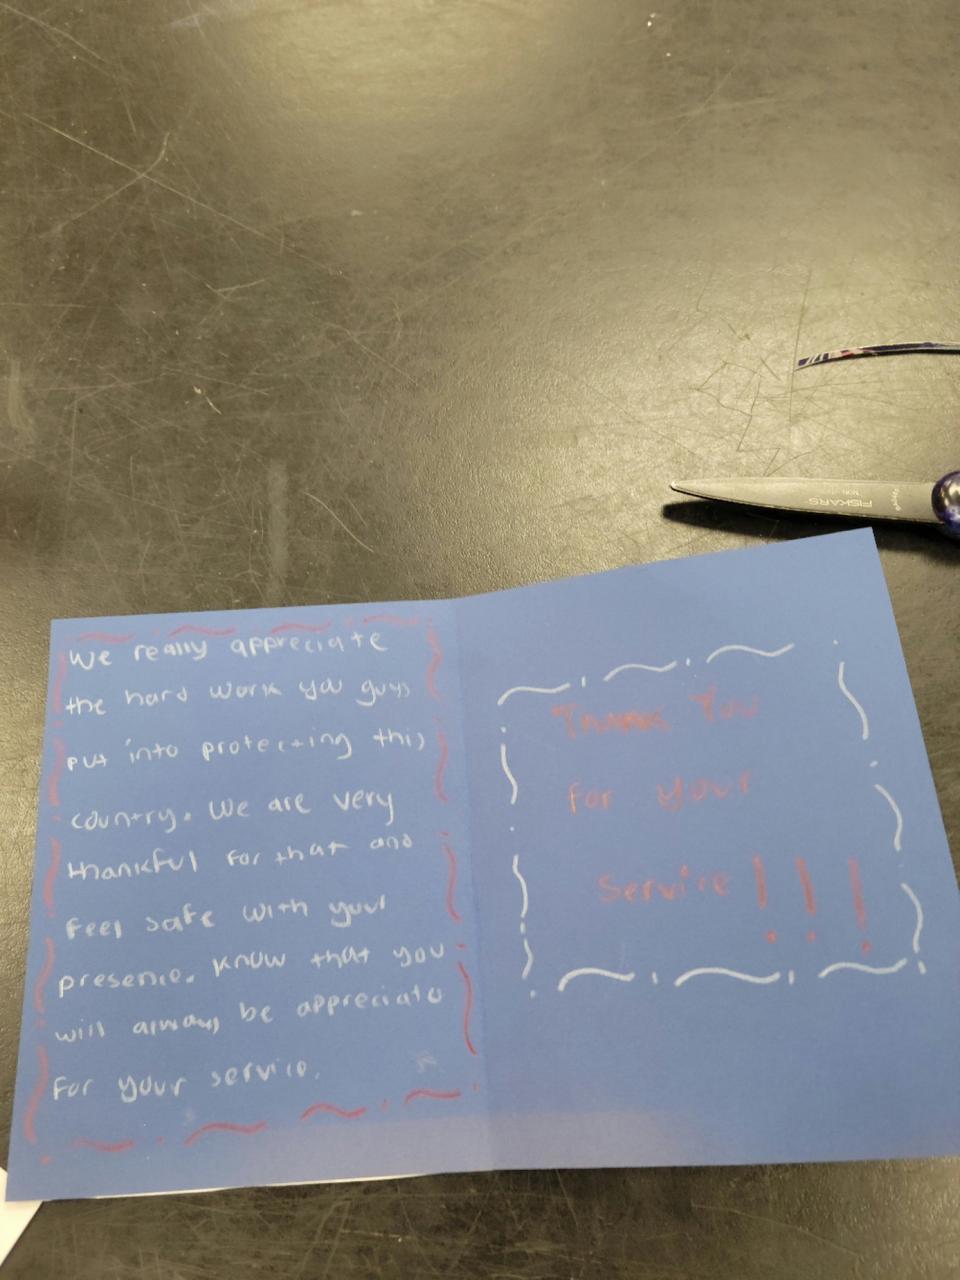 We really appreciate
the hard work you guys
put into protecting this
country. We are very
thankful for that and
feel safe with your
presence. Know that you
will always be appreciate
for your service.
Thank You
for your
service!!!
FISKARS